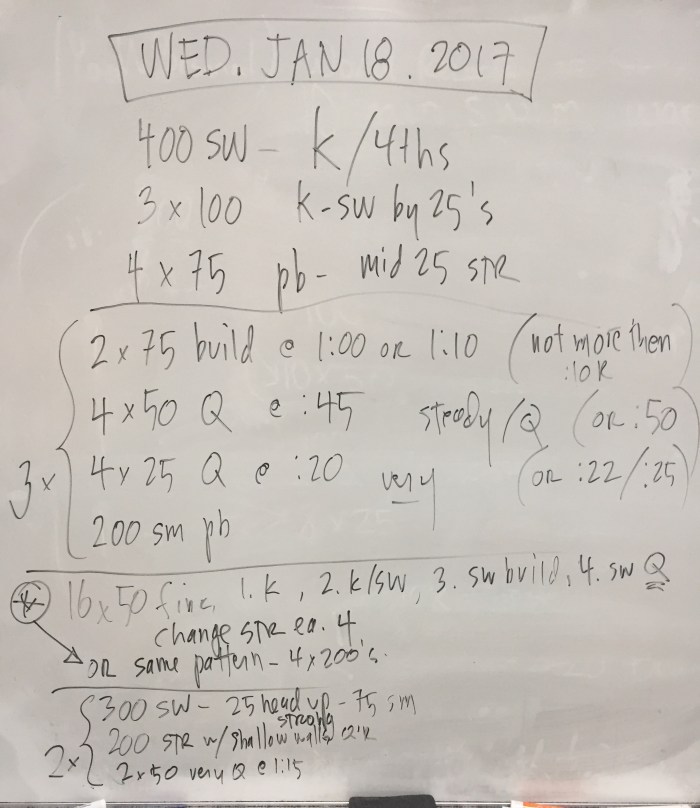 WED. JAN 18. 2017
400 SW - K/4ths
3 x 100 K-SW by 25's
4 x 75 pb - mid 25 STR
3x
2 x 75 build @ 1:00 OR 1:10 (not more then :10R)
4 x 50 Q @ :45 steady/Q (OR :50)
4 x 25 Q @ :20 very (OR :22/:25)
200 sm pb
16x50 1. K, 2. K/SW, 3. SW build, 4. SW Q
change STR ea. 4
OR same pattern - 4 x 200's.
2x
300 SW - 25 head up - 75 sm
200 STR w/ shallow walls strong
2 x 50 very Q @ 1:15